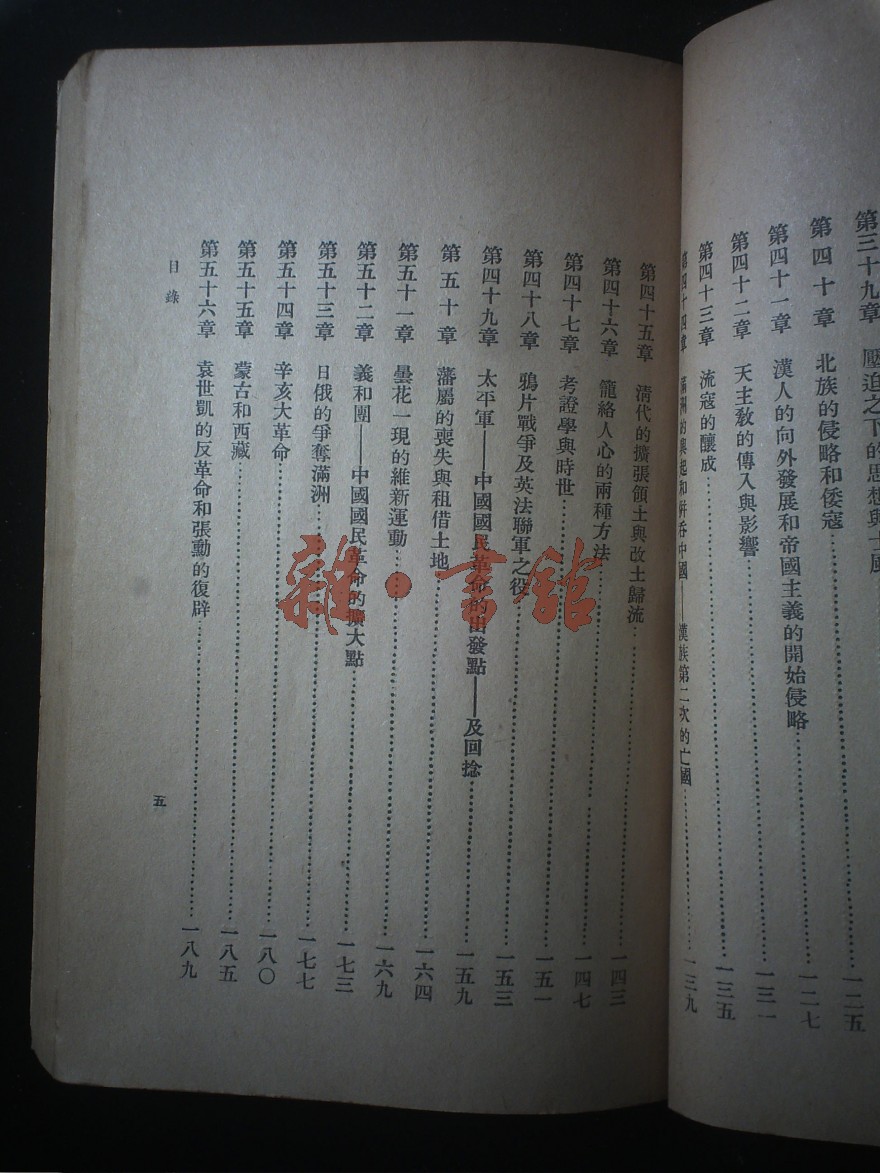 第三十九章 壓迫之下的思想與士風……一二五
第四十章 北族的侵略和倭寇……一二七
第四十一章 漢人的向外發展和帝國主義的開始侵略……一三一
第四十二章 天主教的傳入與影響……一三五
第四十三章 流寇的釀成……一三九
第四十四章 滿洲的興起和併吞中國——漢族第二次的亡國……
第四十五章 清代的擴張領土與改土歸流……一四三
第四十六章 籠絡人心的兩種方法……一四七
第四十七章 考證學與時世……一五一
第四十八章 鴉片戰爭及英法聯軍之役……一五三
第四十九章 太平軍——中國國民革命的出發點——及回捻……一五九
第五十章 藩屬的喪失與租借土地……一六四
第五十一章 曇花一現的維新運動……一六九
第五十二章 義和團——中國國民革命的擴大點……一七三
第五十三章 日俄的爭奪滿洲……一七七
第五十四章 辛亥大革命……一八〇
第五十五章 蒙古和西藏……一八五
第五十六章 袁世凱的反革命和張勳的復辟……一八九
目錄
五
雜·書館